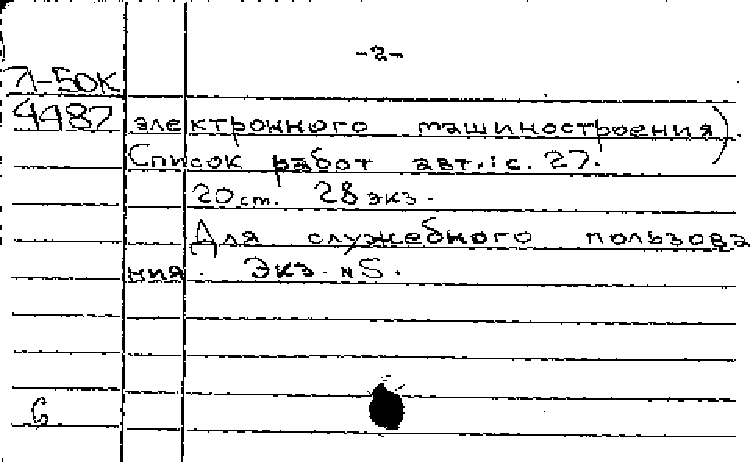 -2-
Л-50К
4487 электронного машиностроения).
Список работ авт.: с. 27.
20 ст. 28 экз.
Для служебного пользова
ния. Экз. № 5.
6